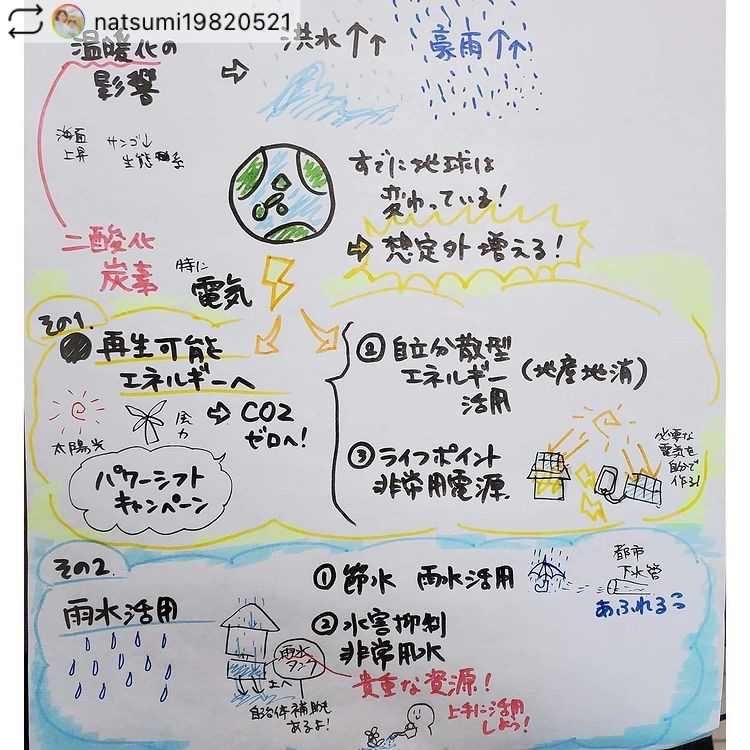 natsumi19820521
温暖化の
影響
⇨
洪水↑↑
豪雨↑↑
海面
上昇
サンゴ↓
生態系
すでに地球は
変わっている!
⇨ 想定外増える!
二酸化
炭素
特に
電気
その1.
再生可能
エネルギーへ
太陽光
風力
⇨ CO2
ゼロへ!
パワーシフト
キャンペーン
② 自立分散型
エネルギー
活用
(地産地消)
③ ライフポイント
非常用電源
必要な
電気を
自分で
作る!
その2.
雨水活用
① 節水 雨水活用
都市
下水管
あふれる
② 水害抑制
非常用水
雨水
タンク
土へ
自治体補助も
あるよ!
貴重な資源!
上手に活用
しよう!